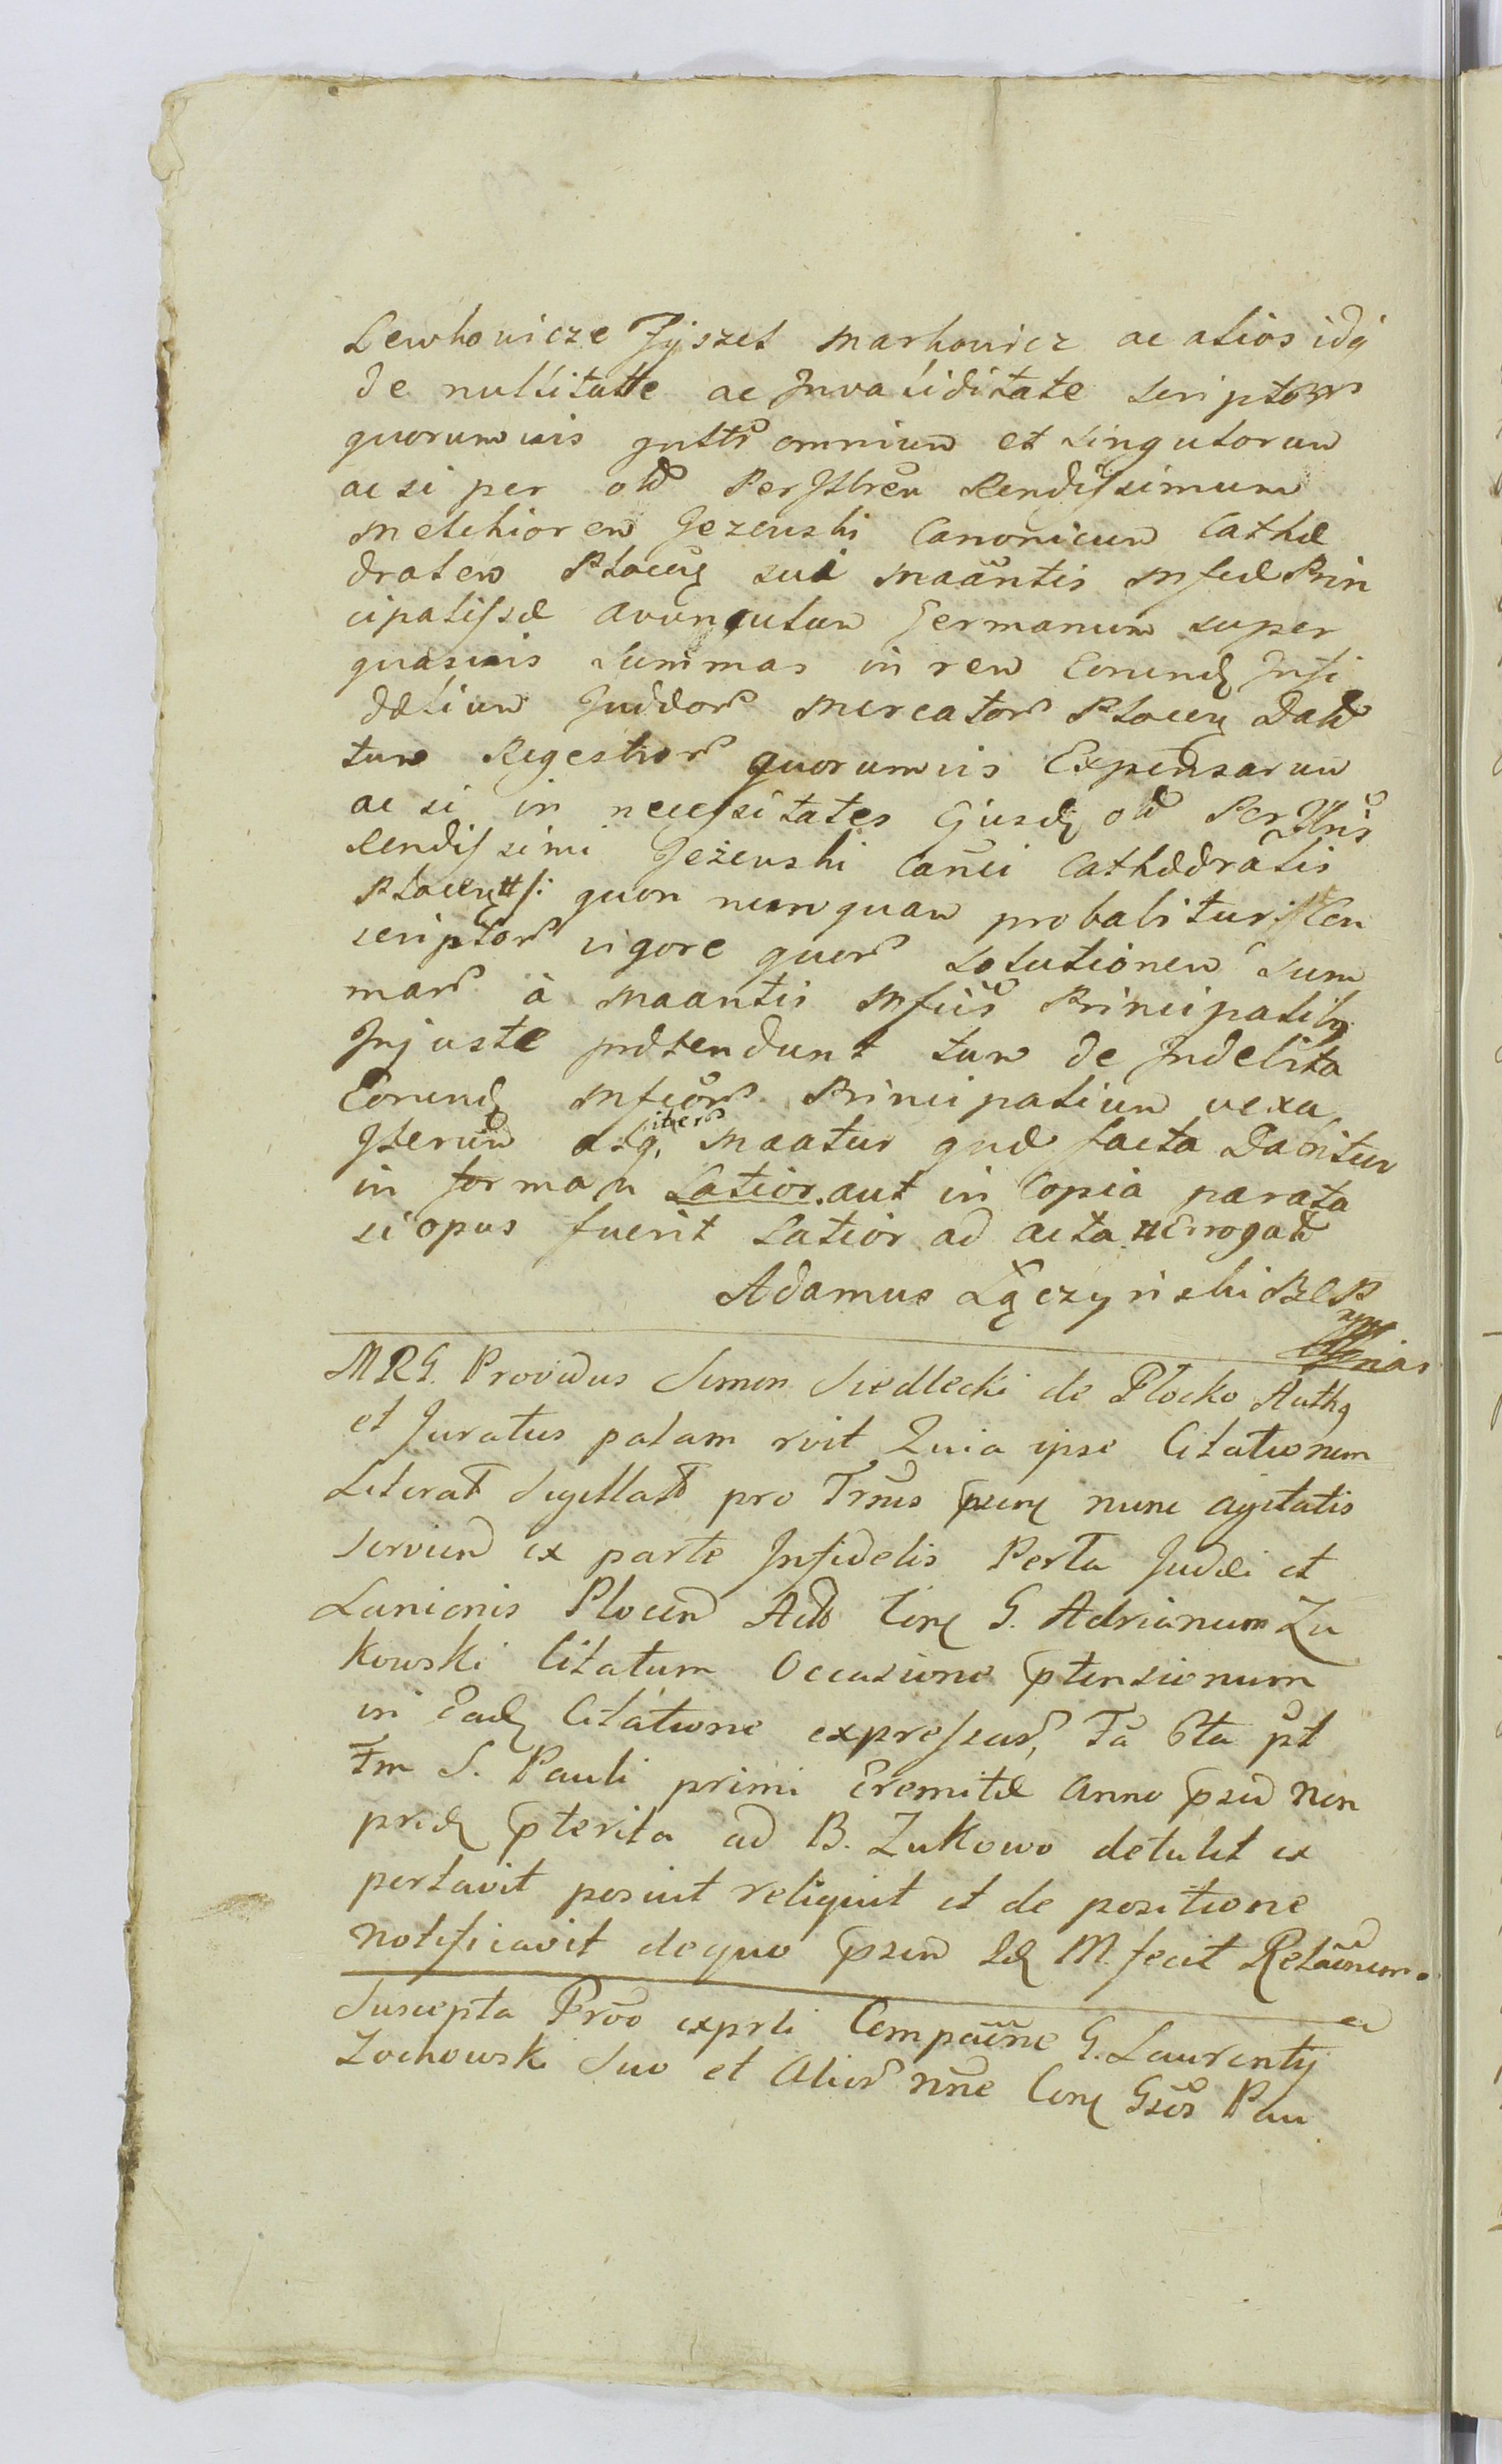 Lewkowicze Zyszel Markowicz ac alios idq
de nullitatte ac Invaliditate scriptors
quorumvis gnltr omnium et singulorum
ac si per olĩ PerIllrẽm Rendissimum
Melchiorem Jezewski Canonicum Cathæ
dralem Plocen̄ sui Maãntis Mfcæ Prin
cipalissæ avunculum Germanum super
quasvis summas in rem Eorund Infi
dælium Judæor Mercator Plocen̄ Dat
tum Regestror quorumvis Expensarum
ac si in necessitates Ejusd olĩ PerIllris
Rendissimi Jeżewski Canci Cathædralis
Plocen̄ /: quon nunquam probabitur :/ Ceu
scriptor vigore quor solutionem sum
mar à Maantis Mfcis Principalibq
Injuste prætendunt tum de Indebita
Eorund Mfcor Principalium vexa
Iterum itterq atq Maatur qnæ facta Dabitur
in formam Latior. aut in Copia parata
si opus fuerit Latior ad acta Errogat
Adamus Łączyński BCP
mp
MRG. Providus Simon Siedlecki de Plocko Authq
et Juratus palam rvit Quia ipse Citationem
Literat Sigillatt pro Trmis psen̄ nunc agitatis
Servien ex parte Infidelis Perla Judæi et
Lanionis Plocen Act Con̄ G. Adrianum Zu
kowski Citatum Occasione ptensionum
in Ead Citatione expressar, Fa 6ta pt
Fm S. Pauli primi Eremitæ Anno psen non
prid pterita ad B. Zukowo detulit ex
portavit posuit reliquit et de positione
notificavit de quo psen Id M. fecit Relanem.
Suscepta Pro exprti Compãne G. Laurentij
Zochowski Suo et Alior nne Con̄ Gsos Pau